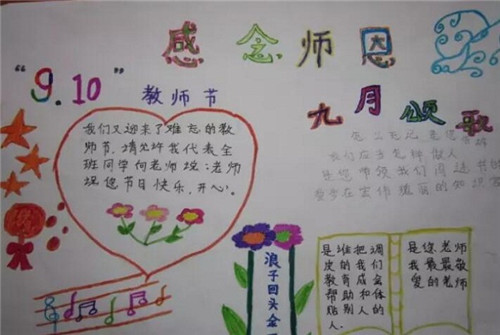 感念师恩
"9.10"
教师节
九月颂歌
我们又迎来了难忘的教
师节,请允许我代表全
班同学向老师说:老师
祝您节日快乐,开心。
我们应当怎样做人
浪子回头金
是谁把调
皮的我们
教育成会体
是您老师
我最最敬
爱的老师